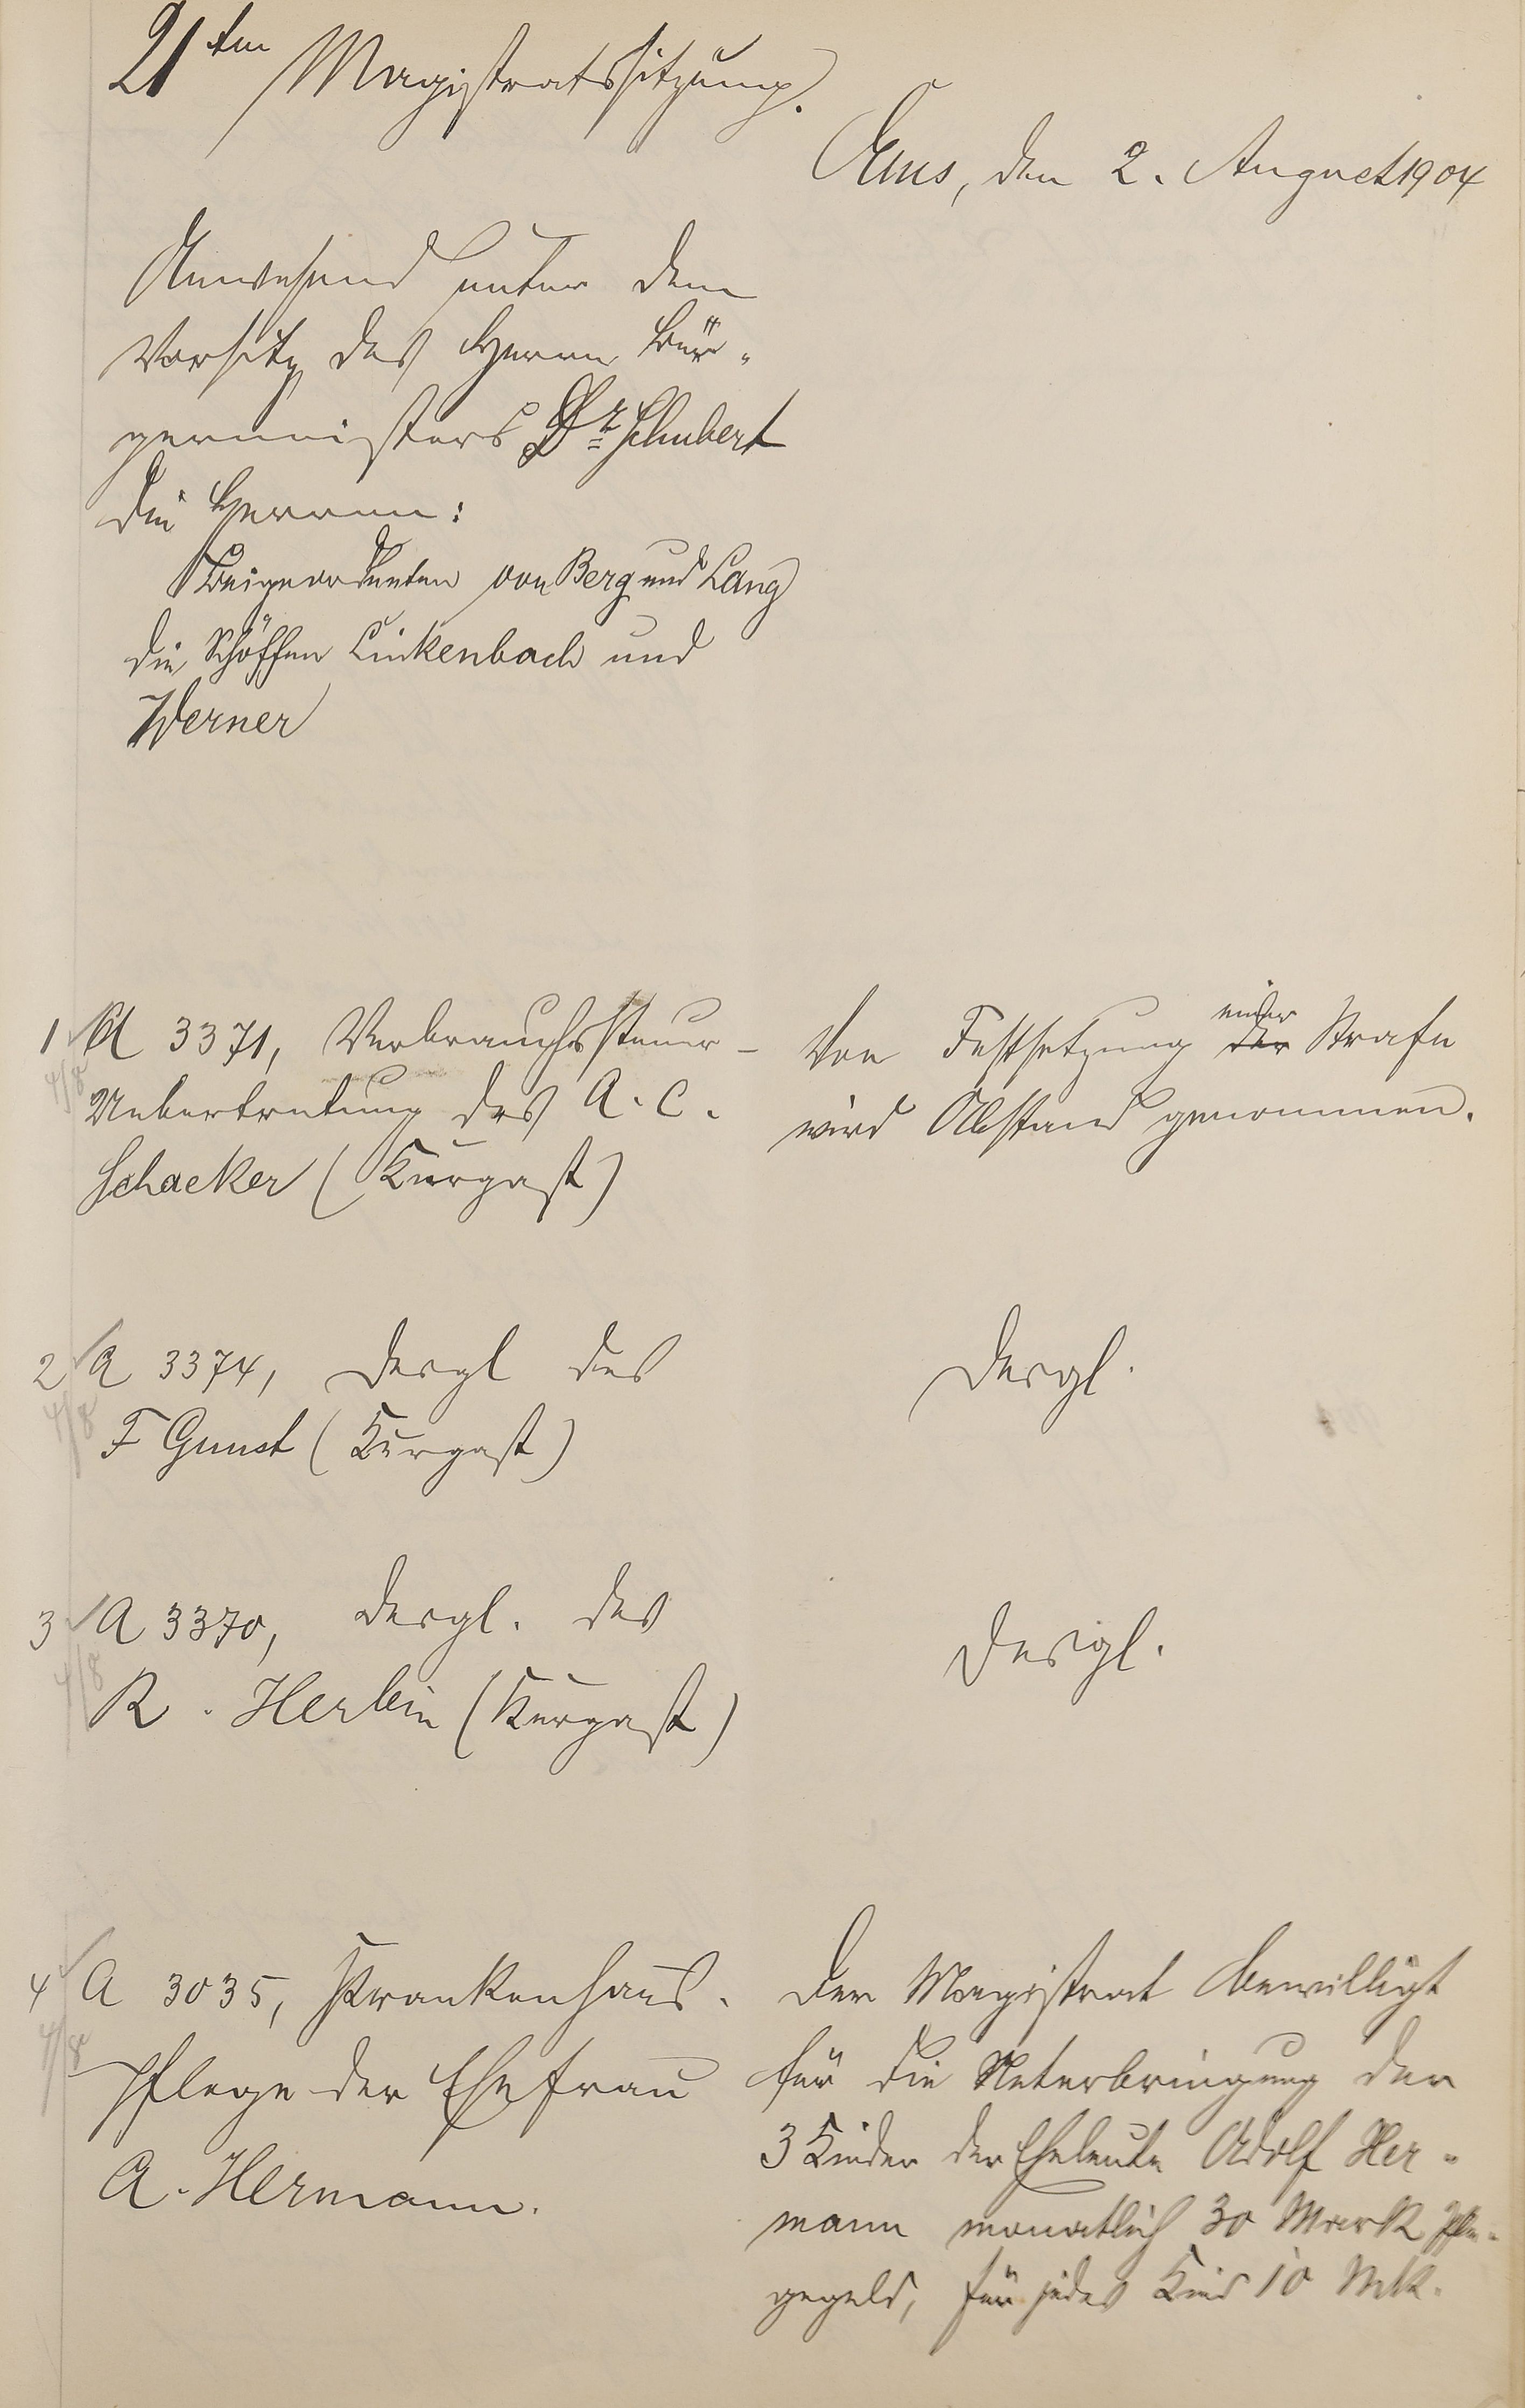 21ten Magistratssitzung.
Ems, den 2. August 1904
Anwesend unter dem
Vorsitz des Herrn Bür-
germeisters Dr. Schubert
die Herren:
Beigeordneten von Berg und Lang
die Schöffen Linkenbach und
Werner
1 A 3371, Verbrauchssteuer-
4/8
Uebertretung des A. C.
Schacker (Kurgast)
Von Festsetzung der einer Strafe
wird Abstand genommen.
2 A 3374, desgl des
4/8
F Gunst (Kurgast)
desgl.
3 A 3370, desgl. des
4/8
R. Herbin (Kurgast)
desgl.
4 A 3035, Krankenhaus-
4/8
pflege der Ehefrau
A. Hermann.
Der Magistrat bewilligt
für die Unterbringung der
3 Kinder der Eheleute Adolf Her-
mann monatlich 30 Mark Pfle-
gegeld, für jedes Kind 10 Mk.